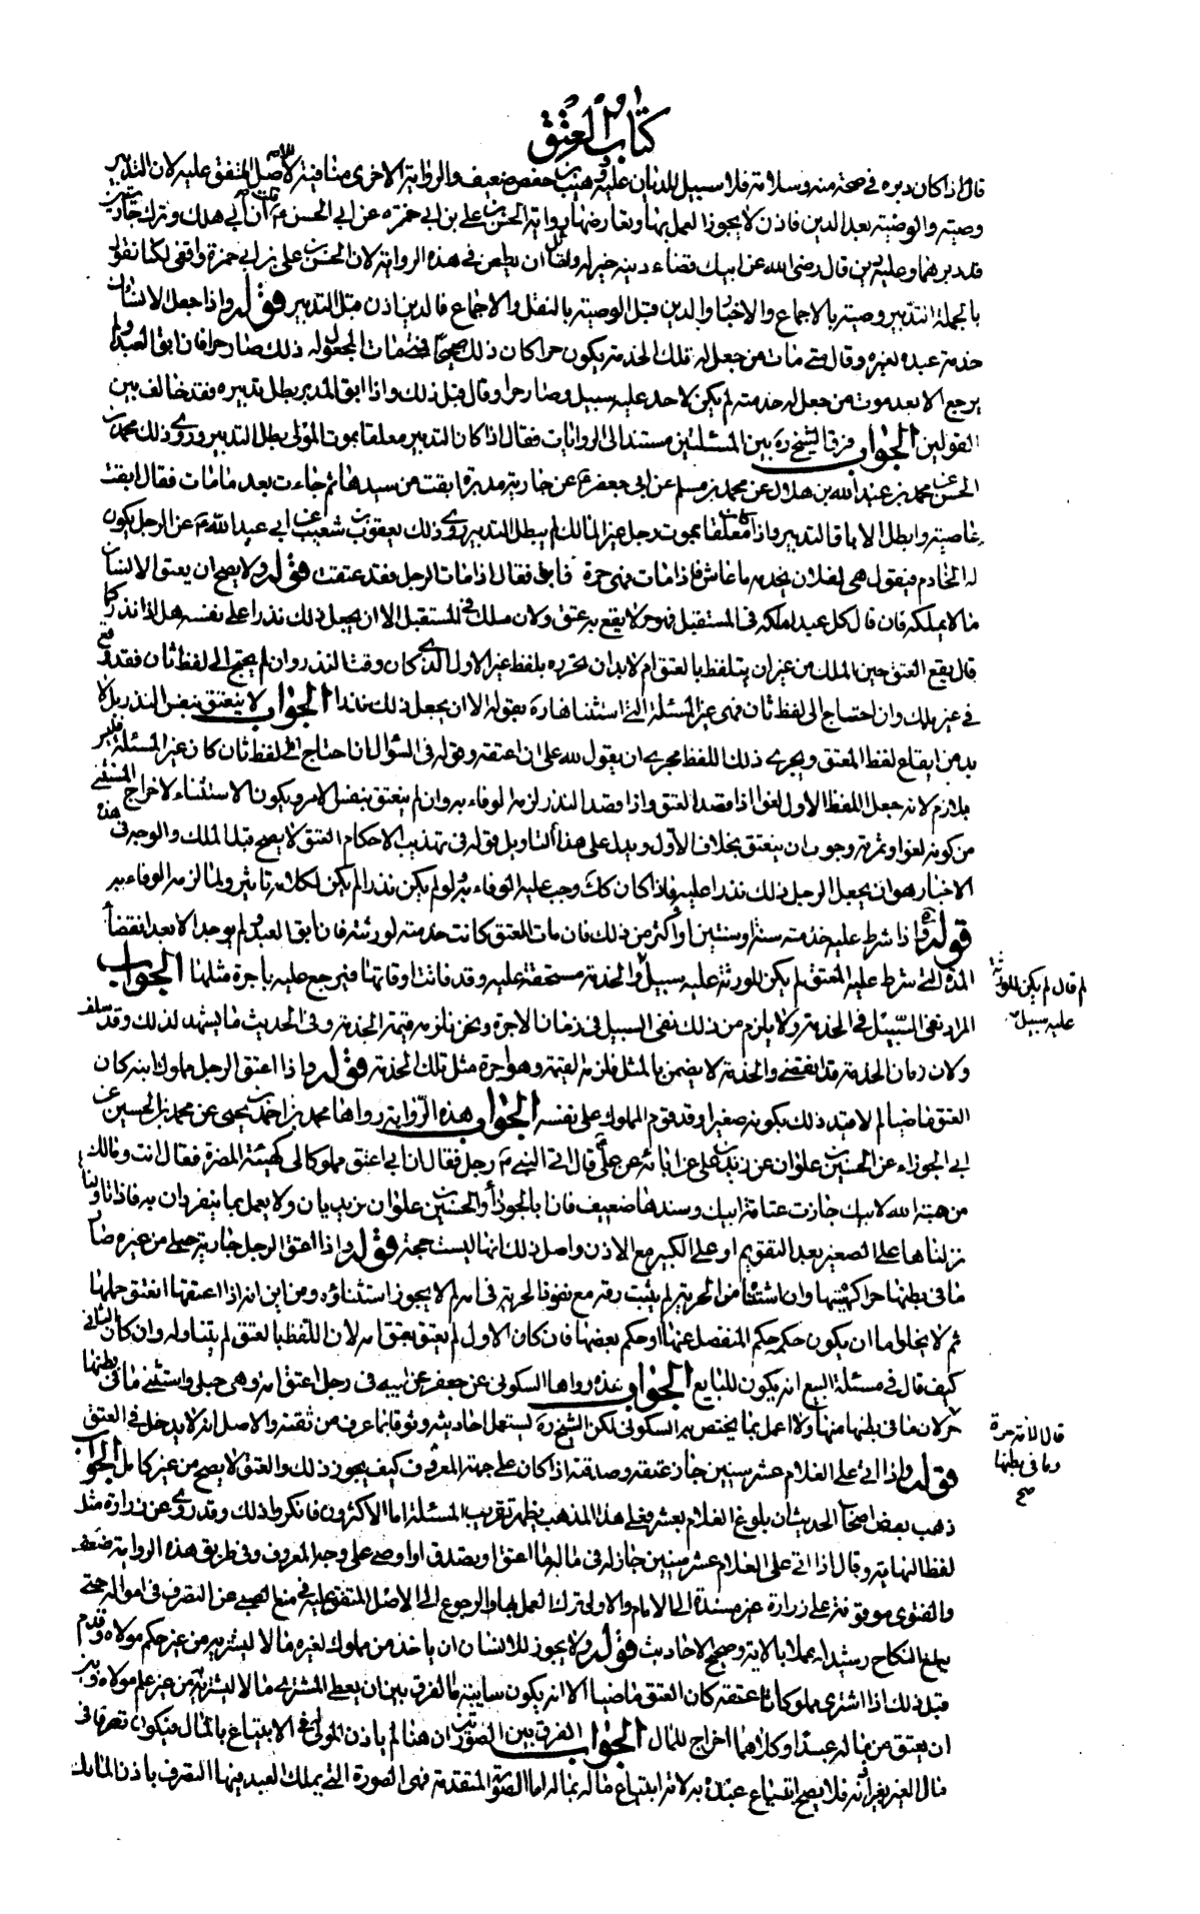 كتاب العتق
قال اذا كان دبره في صحة منه وسلامة فلا سبيل للديان عليه وهيب بن حفص ضعيف والرواية الاخرى منافية للاصل المتفق عليه لان التدبير
وصية والوصية بعد الدين فاذن لا يجوز العمل بها وتعارضها رواية الحسن بن علي بن ابي حمزة عن ابي الحسن ع قلت له ان ابي هلك وترك جاريتين
قد دبرهما وعليه دين قال رضى الله عن ابيك قضاء دينه خير له ولقائل ان يطعن في هذه الرواية لان الحسن بن علي بن ابي حمزة واقفي لكنا نقول
بالجملة التدبير وصية بالاجماع والاخبار والدين قبل الوصية بالنقل والاجماع فالدين اذن قبل التدبير قوله واذا جعل الانسان
خدمة عبده لغيره وقال متى مات من جعل له تلك الخدمة يكون حرا كان ذلك صحيحا فمتى مات المجعول له ذلك صار حرا فان ابق العبد ولم
يرجع الا بعد موت من جعل له خدمته لم يكن لاحد عليه سبيل وصار حرا وقال قبل ذلك واذا ابق المدبر بطل تدبيره فقد خالف بين
القولين الجواب فرق الشيخ ره بين المسئلتين مستندا الى الروايات فقال اذا كان التدبير معلقا بموت المولى بطل التدبير وروى ذلك محمد بن
الحسن عن محمد بن عبد الله بن هلال عن محمد بن مسلم عن ابي جعفر ع عن جارية مدبرة ابقت من سيدها ثم جاءت بعد ما مات فقال ابقت
عاصية وابطل الاباق التدبير واذا كان معلقا بموت رجل غير المالك لم يبطل التدبير روى ذلك يعقوب بن شعيب عن ابي عبد الله ع عن الرجل يكون
له الخادم فيقول هي لفلان تخدمه ما عاش فاذا مات فهى حرة فابق فقال اذا مات الرجل فقد عتقت قوله ولا يصح ان يعتق الانسان
ما لا يملكه فان قال كل عبد املكه في المستقبل فهو حر لا يقع به عتق ولان ملك في المستقبل الا ان يجعل ذلك نذرا على نفسه هل اذا نذر كما
قال يقع العتق حين الملك من غير ان يتلفظ بالعتق ام لا بد ان يحرره بلفظ غير الاول الذى كان وقت النذر وان لم يحتج الى لفظ ثان فقد وقع
في غير ملك وان احتاج الى لفظ ثان فهى غير المسئلة التى استثناها ره بقوله الا ان يجعل ذلك نذرا الجواب لا ينعتق بنفس النذر بل لا
بد من ايقاع لفظ العتق ويجرى ذلك اللفظ مجرى ان يقول لله على ان اعتقه وقوله في السؤال ان احتاج الى لفظ ثان كان غير المسئلة فليس
يلازم لانه جعل اللفظ الاول لغوا اذا قصد العتق واذا قصد النذر لزمه الوفاء به وان لم ينعتق بنفس الامر ويكون الاستثناء لاخراج المستثنى
من كونه لغوا وثمرته وجوب ان ينعتق بخلاف الاول ويدل على هذا التاويل قوله في تهذيب الاحكام العتق لا يصح قبل الملك والوجه في هذه
الاخبار هو ان يجعل الرجل ذلك نذرا عليه فاذا كان كك وجب عليه الوفاء به ولو لم يكن نذرا لم يكن لكلامه تاثير ولما لزمه الوفاء به
قوله واذا شرط عليه خدمته سنة او سنتين او اكثر من ذلك فان مات المعتق كانت خدمته لورثته فان ابق العبد ولم يوجد الا بعد انقضاء
المدة التى شرط عليه المعتق لم يكن للورثة عليه سبيل والخدمة مستحقة عليه وقد فاتت اوقاتها فيرجع عليه باجرة مثلها الجواب
لم قال لم يكن للورثة
عليه سبيل
المراد نفى السبيل في الخدمة ولا يلزم من ذلك نفى السبيل في زمان الاجرة ونحن نلزمه قيمة الخدمة وفى الحديث ما يشهد لذلك وقد سلف
ولان زمان الخدمة قد انقضى والخدمة لا يضمن بالمثل فلزمه القيمة وهو اجرة مثل تلك الخدمة قوله واذا اعتق الرجل مملوك ابنه كان
العتق ماضيا لم لا قيد ذلك بكونه صغيرا وقد قوم المملوك على نفسه الجواب هذه الرواية رواها محمد بن احمد بن يحيى عن محمد بن الحسين عن
ابي الجوزاء عن الحسين بن علوان عن زيد بن على عن ابائه عن على ع قال اتى النبى ص رجل فقال ان ابي اعتق مملوكا لى كهيئة المضرة فقال انت ومالك
من هبة الله لابيك جازت عتاقة ابيك وسندها ضعيف فان ابا الجوزاء والحسين بن علوان زيديان ولا يعمل بما ينفردان به فاذا تاولنا
نزلناها على الصغير بعد التقويم او على الكبير مع الاذن واصل ذلك انها ليست حجة قوله واذا اعتق الرجل جارية حبلى من غيره صار
ما في بطنها حرا كهيئتها وان استثناه من الحرية لم يثبت رقه مع نفوذ الحرية في امه لم لا يجوز استثناؤه ومن اين انه اذا اعتقها انعتق حملها
ثم لا يخلو اما ان يكون حكمه حكم المنفصل عنها او حكم بعضها فان كان الاول لم يعتق بعتق امه لان اللفظ بالعتق لم يتناوله وان كان الثانى
كيف قال في مسئلة البيع انه يكون للبايع الجواب هذه رواها السكونى عن جعفر عن ابيه في رجل اعتق امه وهى حبلى واستثنى ما في بطنها
قال الامة حرة
وما في بطنها
صح
حر لان ما في بطنها منها ولا اعمل بما يختص به السكونى لكن الشيخ ره يستعمل احاديثه وثوقا بما عرف من ثقته والاصل انه لا يدخل في العتق
قوله واذا اتى على الغلام عشر سنين جاز عتقه وصدقته اذا كان على جهة المعروف كيف يجوز ذلك والعتق لا يصح من غير كامل الجواب
ذهب بعض اصحاب الحديث ان بلوغ الغلام بعشر فعلى هذا المذهب يظهر تقريب المسئلة اما الاكثرون فانكروا ذلك وقد روى عن زرارة مثل
لفظ النهاية وقال اذا اتى على الغلام عشر سنين جاز له في ماله ما اعتق او تصدق او اوصى على وجه المعروف وفى طريق هذه الرواية ضعف
والفتوى موقوفة على زرارة غير مسندة الى الامام والاولى ترك العمل بها والرجوع الى الاصل المتفق عليه في منع الصبى عن التصرف في امواله حتى
يبلغ النكاح رشيدا عملا بالاية وصحيح الاحاديث قوله ولا يجوز للانسان ان ياخذ من مملوك لغيره مالا ليشتريه من غير حكم مولاه وقدم
قبل ذلك اذا اشترى مملوكا فاعتقه كان العتق ماضيا الا انه يكون سايبة ما الفرق بين ان يعطى المشترى مالا ليشتريه من غير علم مولاه وبين
ان يعتق من ماله عبدا وكلاهما اخراج للمال الجواب الفرق بين الصورتين ان هنا لم ياذن المولى له في الابتياع بالمال فيكون تصرفا في
مال الغير بغير اذنه فلا يصح ابتياع عبده به لانه ابتياع ماله بماله اما الصورة المتقدمة فهى الصورة التى يملك العبد فيها التصرف باذن المالك